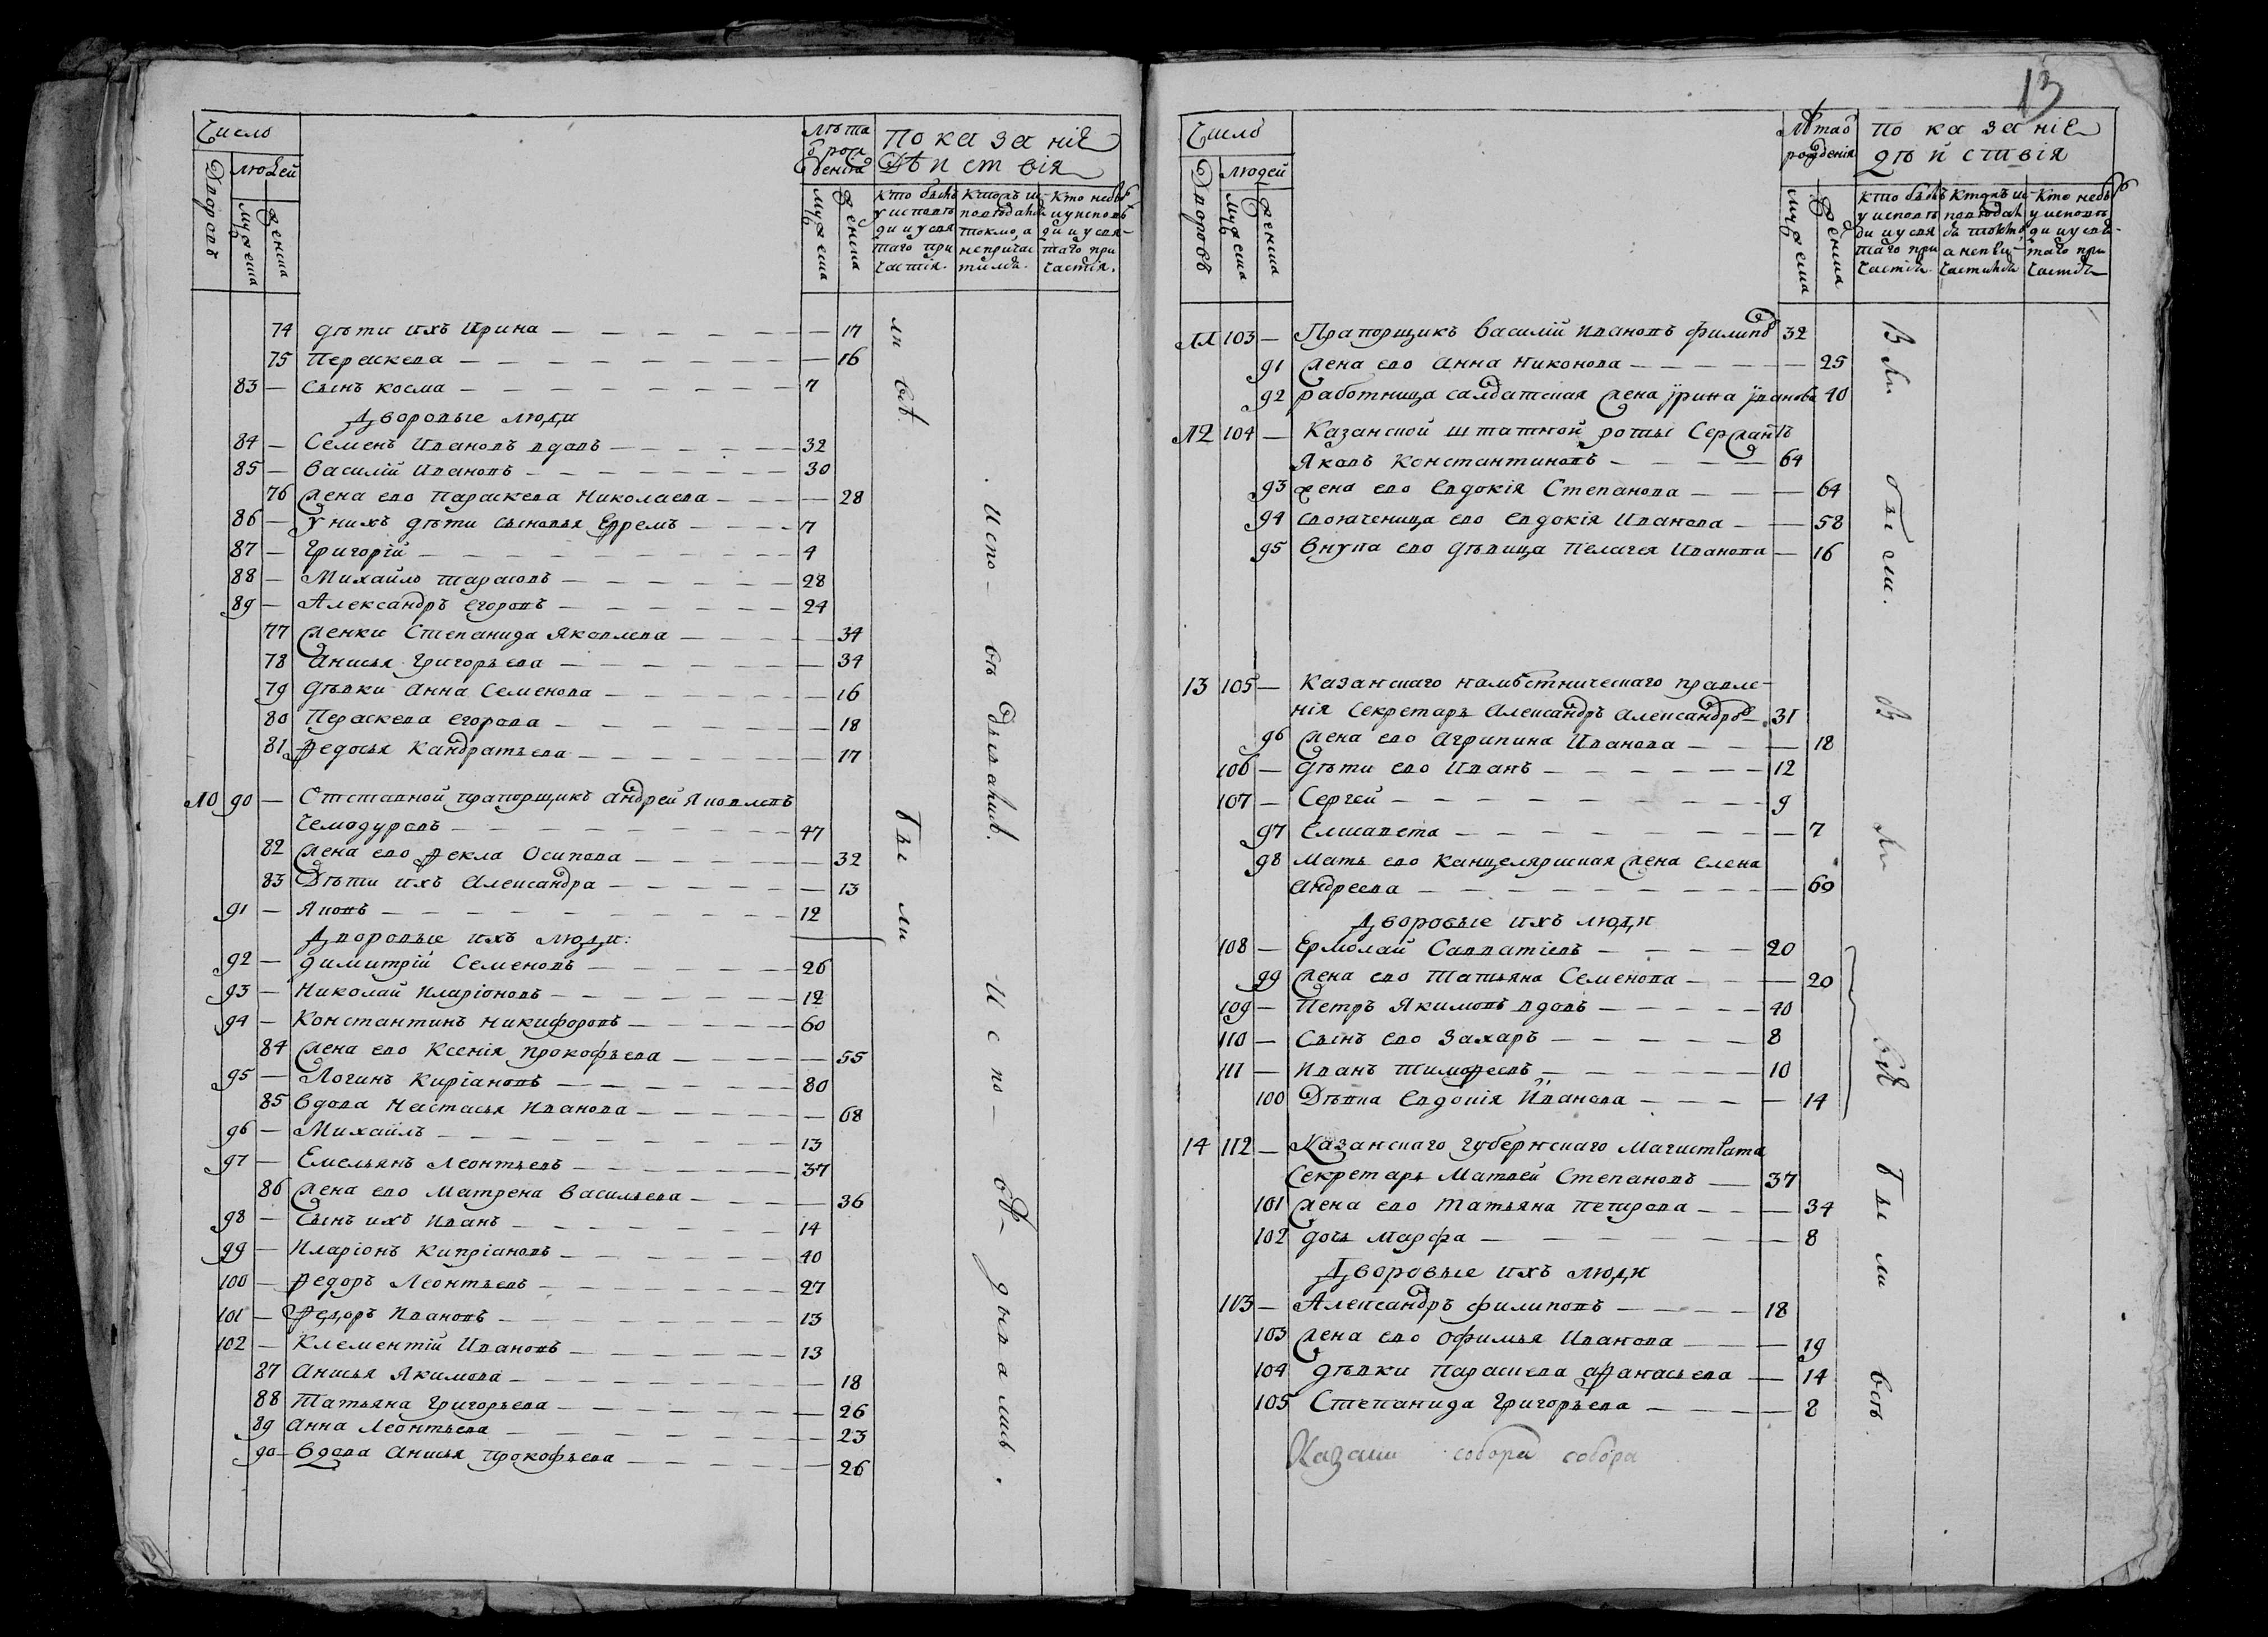 Число
Дворовъ
людей
мужеска
женска
Лѣта
ѿ рож
денїя
мужеска
женска
Показанїе
Дѣйствїя
кто былъ
у исповѣ
ди и у свя
таго при
частїя.
Кто не бы
ди и у свя-
таго при
частїя.
74 дѣти ихъ Ирина — 17
75 Пераскева — 16
83 — Сынъ косма — 7
Дворовые люди
84 — Семенъ Ивановъ вдовъ — 32
85 — Василїй Ивановъ — 30
76 жена ево Параскева Николаева — 28
86 — у нихъ дѣти сыновья Ефремъ — 7
87 — Григорїй — 4
88 — Михайло тарасовъ — 28
89 — Александръ егоровъ — 24
77 женки Степанида Яковлева — 34
78 Анисья Григорьева — 34
79 дѣвки Анна Семенова — 16
80 Пераскева егорова — 18
81 Федосья Кандратьева — 17
10 90 — Отставной прапорщикъ андрей Яковлевъ
Чемодуровъ — 47
82 жена ево Фекла Осипова — 32
83 Дѣти ихъ Александра — 13
91 — Яковъ — 12
Дворовые ихъ люди:
92 — димитрїй Семеновъ — 26
93 — Николай Иларїоновъ — 12
94 — Константинъ никифоровъ — 60
84 жена ево Ксенїя прокофьева — 55
95 — Логинъ Кирїановъ — 80
85 вдова Настасья Иванова — 68
96 — Михайлъ — 13
97 — Емельянъ Леонтьевъ — 37
86 жена ево Матрена Васильева — 36
98 — Сынъ ихъ Иванъ — 14
99 — Иларїонъ Кипрїановъ — 40
100 — Федоръ Леонтьевъ — 27
101 — Федоръ Ивановъ — 13
102 — Клементїй Ивановъ — 13
87 Анисья Якимова — 18
88 Татьяна Григорьева — 26
89 Анна Леонтьева — 23
90 — вдова Анисья прокофьева — 26
ли всѣ.
Испо-вѣдывались.
Бы ли
Испо-вѣ-дывались.
13
Число
Дворовъ
людей
мужеска
женска
Лѣта ѿ
рожденїя
мужеска
женска
Показанїе
дѣйствїя
кто былъ
у исповѣ
ди и у свя
таго при
частїя.
Кто не бы
у исповѣ
ди и у свя-
таго при
частїя
11 103 — Прапорщикъ василїй ивановъ филиповъ 32
91 жена ево Анна Никонова — 25
92 работница салдатская жена ирина иванова 40
12 104 — Казанской штатной роты Сержантъ
Яковъ Константиновъ — 64
93 жена ево Евдокїя Степанова — 64
94 своячeница ево Евдокїя Иванова — 58
95 внука ево дѣвица Пелагея Иванова — 16
13 105 — Казанскаго намѣстническаго правле-
нїя Секретарь Александръ александровъ — 31
96 жена ево Агрипина Иванова — 18
106 — дѣти ево Иванъ — 12
107 — Сергей — 9
97 Елисавета — 7
98 мать ево Канцелярисная жена елена
андреева — 60
Дворовые ихъ люди
108 — Ермолай Савватїевъ — 20
99 жена ево татьяна Семенова — 20
109 — Петръ Якимовъ вдовъ — 40
110 — Сынъ ево Захаръ — 8
111 — Иванъ тимофеевъ — 10
100 Дѣвка Евдокїя Иванова — 14
14 112 — Казанскаго Губернскаго магистрата
Секретарь Матвей Степановъ — 37
101 жена ево татьяна петрова — 34
102 дочь марфа — 8
Дворовые ихъ люди
113 — Александръ филиповъ — 18
103 жена ево офимья Иванова — 19
104 дѣвки параскева афанасьева — 14
105 Степанида Григорьева — 8
собора собора
были.
всѣ
Бы ли всѣ.